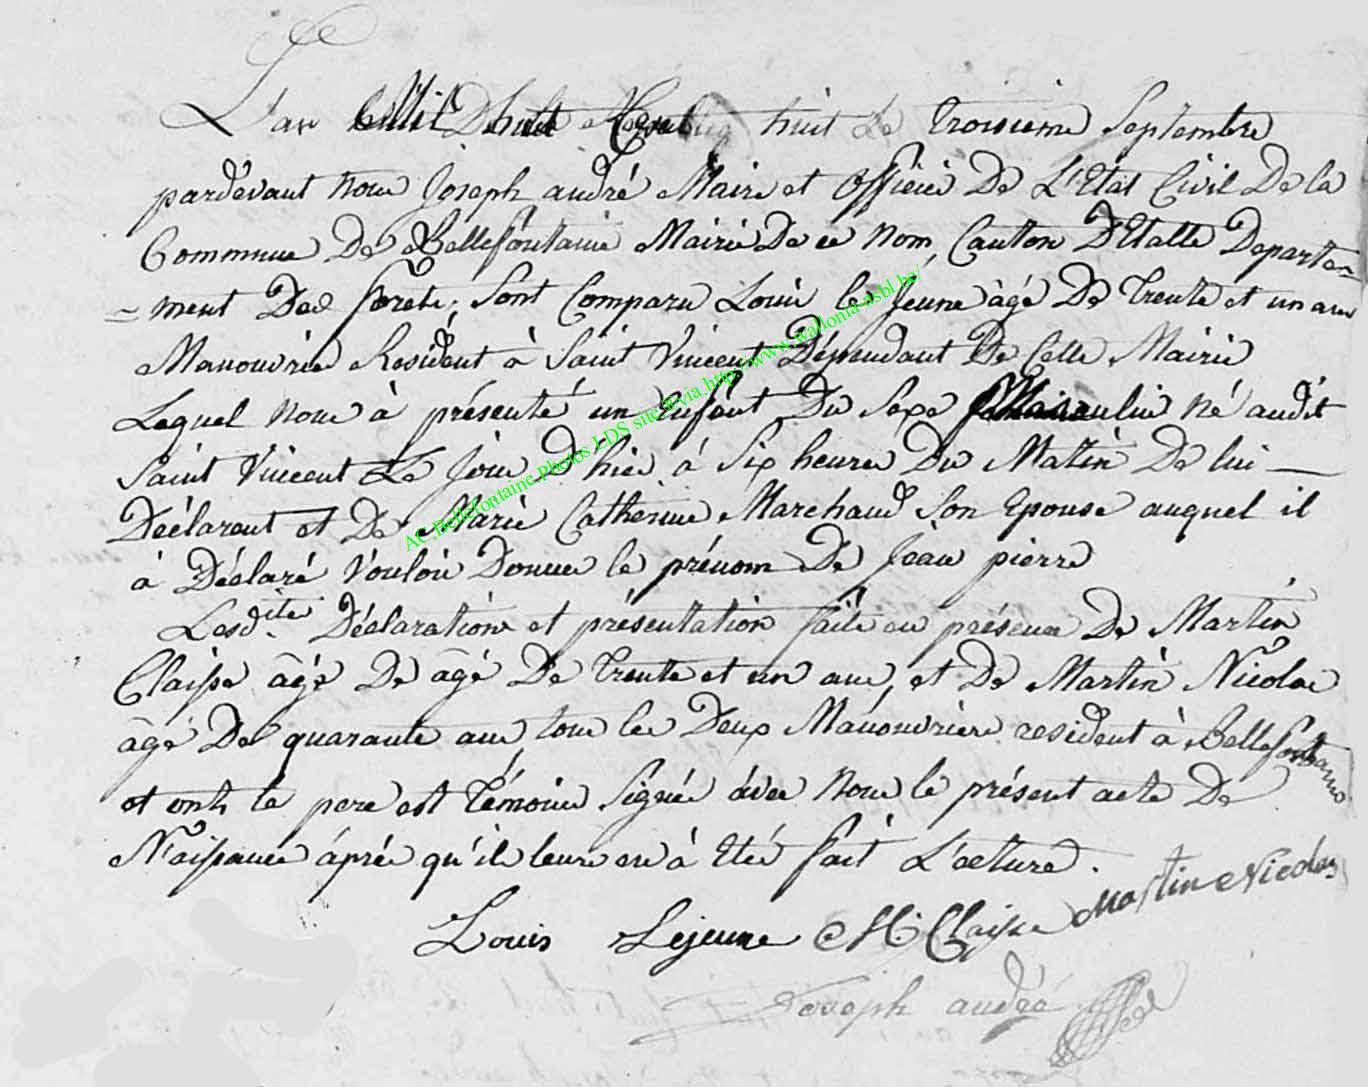 L'an Mil Dhuit Cent huit Le Troisieme Septembre
pardevant nous Joseph andré Maire et officier De L'Etat Civil De la
Commune De Bellefontaine Mairie De ce nom Canton D'Etalle Departe-
=ment Des forets, sont Comparu Louis le Jeune âgé De Trente et un ans
Manouvrier Resident à Saint Vincent Dépendant De Celle Mairie
Lequel nous à présenté un Enfant Du Sexe Masculin né audit
Saint Vincent Le Jour D'hier à Six heures Du Matin De lui
Déclarant et De Marie Catherine Marchand Son Epouse auquel il
à Déclaré Vouloir Donner le prénom De Jean pierre
Lesd.ites Déclaration et présentation faite en présence De Martin
Claisse âgé De âgé De Trente et un ans, et De Martin Nicolas
âgé De quarante ans tous les Deux Manouvriers resident à Bellefontaine
et onts le pere est Témoins Signés avec Nous le présent acte De
Naissance après qu'il leurs en à Eté fait L'ecture.
Louis Lejeune M Claisse Martin Nicolas
Joseph andré
AC.Bellefontaine.Photos LDS site via http://www.wallonia-asbl.be/